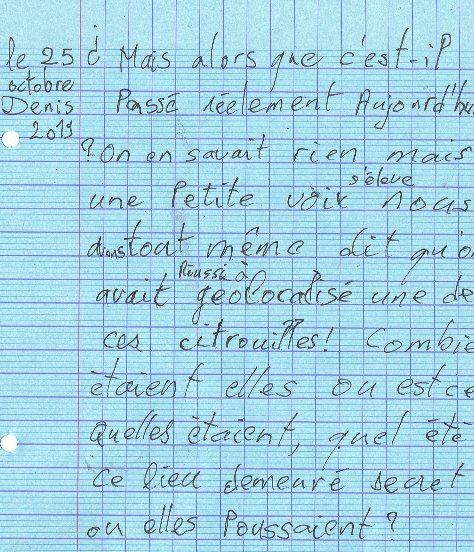 le 25
octobre
Denis
2019
¿ Mais alors que c'est-il
Passé réelement Aujourd'hu
? On en savait rien mais
s'éleve
une Petite voix nous
tout même dit qu'o
Réussi à
avait géolocalisé une de
ces citrouilles! Combie
étaient elles ou est ce
quelles étaient, quel été
ce lieu demeuré secret
ou elles Poussaient?